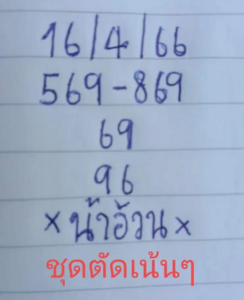 16/4/66
569-869
69
96
×น้าอ้วน×
ชุดตัดเน้นๆ